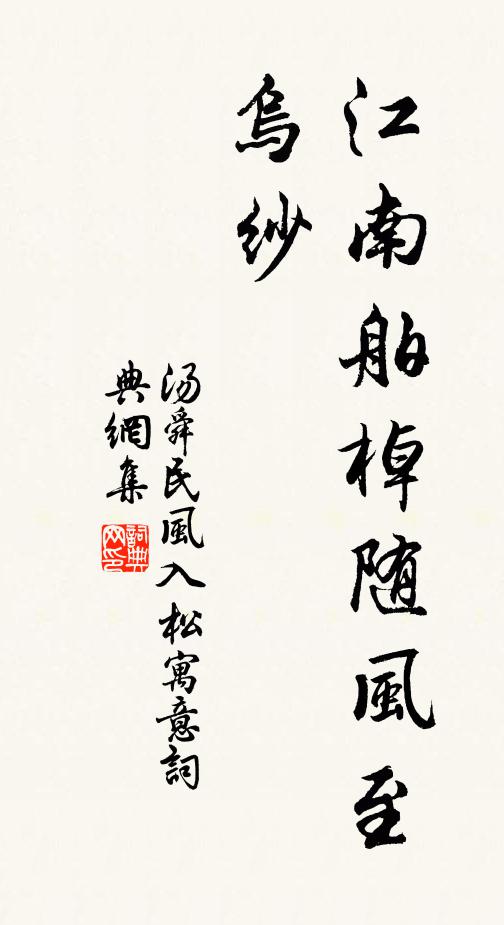 江南舶棹随風至
烏紗
汤舜民風入松寓意詞
典網集
詞典网印